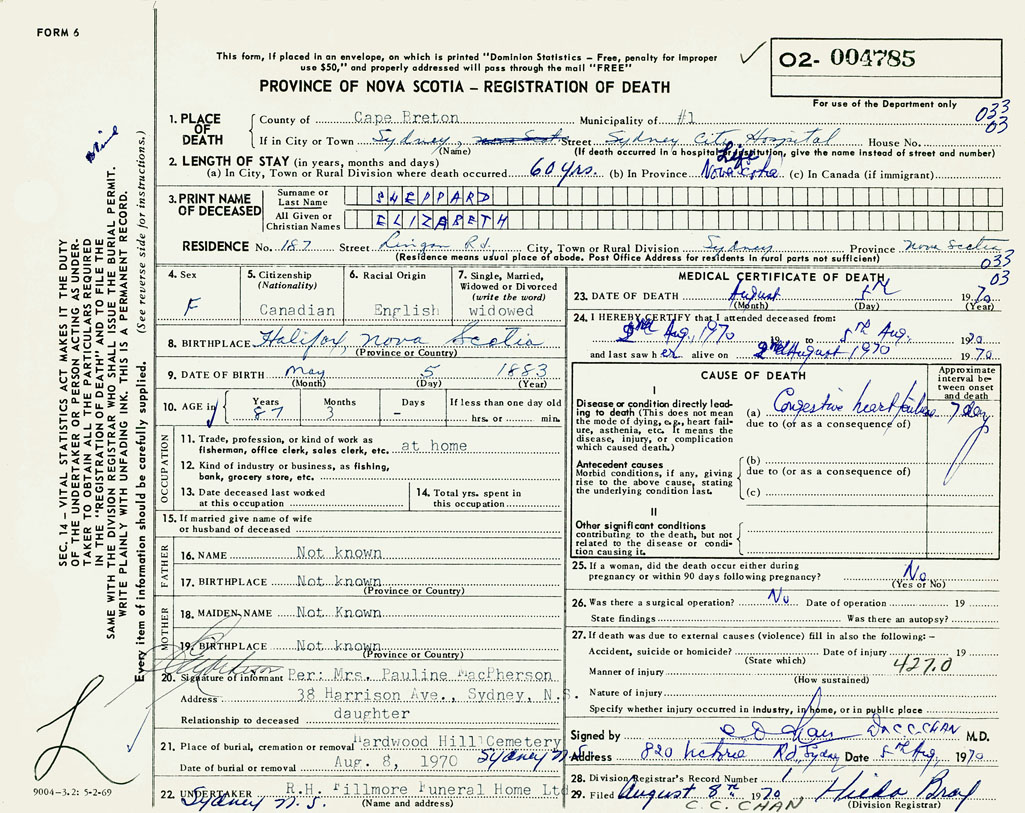 FORM 6
This form, if placed in an envelope, on which is printed "Dominion Statistics – Free, penalty for improper
use $50," and properly addressed will pass through the mail "FREE"
02- 004785
For use of the Department only
PROVINCE OF NOVA SCOTIA – REGISTRATION OF DEATH
033
03
1. PLACE OF DEATH County of Cape Breton Municipality of #1
If in City or Town Sydney, Street Sydney City Hospital House No.
(Name) (If death occurred in a hospital or institution, give the name instead of street and number)
2. LENGTH OF STAY (in years, months and days) Life
(a) In City, Town or Rural Division where death occurred 60 yrs. (b) In Province Nova Scotia (c) In Canada (if immigrant)
3. PRINT NAME OF DECEASED
Surname or Last Name SHEPPARD
All Given or Christian Names ELIZABETH
RESIDENCE No. 187 Street Lingan Rd. City, Town or Rural Division Sydney Province Nova Scotia
(Residence means usual place of abode. Post Office Address for residents in rural parts not sufficient)
033
03
4. Sex F
5. Citizenship (Nationality) Canadian
6. Racial Origin English
7. Single, Married, Widowed or Divorced (write the word) widowed
8. BIRTHPLACE Halifax, Nova Scotia
(Province or Country)
9. DATE OF BIRTH May 5 1883
(Month) (Day) (Year)
10. AGE in Years 87 Months 3 Days – If less than one day hrs. or min.
OCCUPATION
11. Trade, profession, or kind of work as
fisherman, office clerk, sales clerk, etc. at home
12. Kind of industry or business, as fishing,
bank, grocery store, etc.
13. Date deceased last worked
at this occupation
14. Total yrs. spent in
this occupation
15. If married give name of wife
or husband of deceased
FATHER
16. NAME Not known
17. BIRTHPLACE Not known
(Province or Country)
MOTHER
18. MAIDEN NAME Not Known
19. BIRTHPLACE Not known
(Province or Country)
20. Signature of informant Per: Mrs. Pauline MacPherson
Address 38 Harrison Ave., Sydney, N.S.
Relationship to deceased daughter
21. Place of burial, cremation or removal Hardwood Hill Cemetery
Sydney N.S.
Date of burial or removal Aug. 8, 1970
22. UNDERTAKER R.H. Fillmore Funeral Home Ltd
Sydney N.S. (Name and address)
MEDICAL CERTIFICATE OF DEATH
23. DATE OF DEATH August 5th 1970
(Month) (Day) (Year)
24. I HEREBY CERTIFY that I attended deceased from:
2nd Aug, 1970 to 5th Aug, 1970
and last saw her alive on 2nd August 1970 1970
CAUSE OF DEATH
Approximate interval between onset and death
I
Disease or condition directly lead-
ing to death (This does not mean
the mode of dying, e.g., heart fail-
ure, asthenia, etc. It means the
disease, injury, or complication
which caused death.)
(a) Congestive heart failure 7 day
due to (or as a consequence of)
Antecedent causes
Morbid conditions, if any, giving
rise to the above cause, stating
the underlying condition last.
(b)
due to (or as a consequence of)
(c)
II
Other significant conditions
contributing to the death, but not
related to the disease or condi-
tion causing it.
25. If a woman, did the death occur either during
pregnancy or within 90 days following pregnancy? No
(Yes or No)
26. Was there a surgical operation? No Date of operation 19
State findings Was there an autopsy?
27. If death was due to external causes (violence) fill in also the following: –
Accident, suicide or homicide? Date of injury 19
(State which) 427.0
Manner of injury
(How sustained)
Nature of injury
Specify whether injury occurred in industry, in home, or in public place
Signed by Dr C.C. CHAN M.D.
Address 820 Victoria Rd, Sydney Date 5th Aug, 1970
28. Division Registrar's Record Number 1
29. Filed August 8th 1970 Hilda Bray
C.C. CHAN (Division Registrar)
SEC. 14 – VITAL STATISTICS ACT MAKES IT THE DUTY
OF THE UNDERTAKER OR PERSON ACTING AS UNDER-
TAKER TO OBTAIN ALL THE PARTICULARS REQUIRED
IN THE "REGISTRATION OF DEATH" AND TO FILE THE
SAME WITH THE DIVISION REGISTRAR WHO SHALL ISSUE THE BURIAL PERMIT.
WRITE PLAINLY WITH UNFADING INK. THIS IS A PERMANENT RECORD.
Every item of information should be carefully supplied. (See reverse side for instructions.)
9004-3.2: 5-2-69